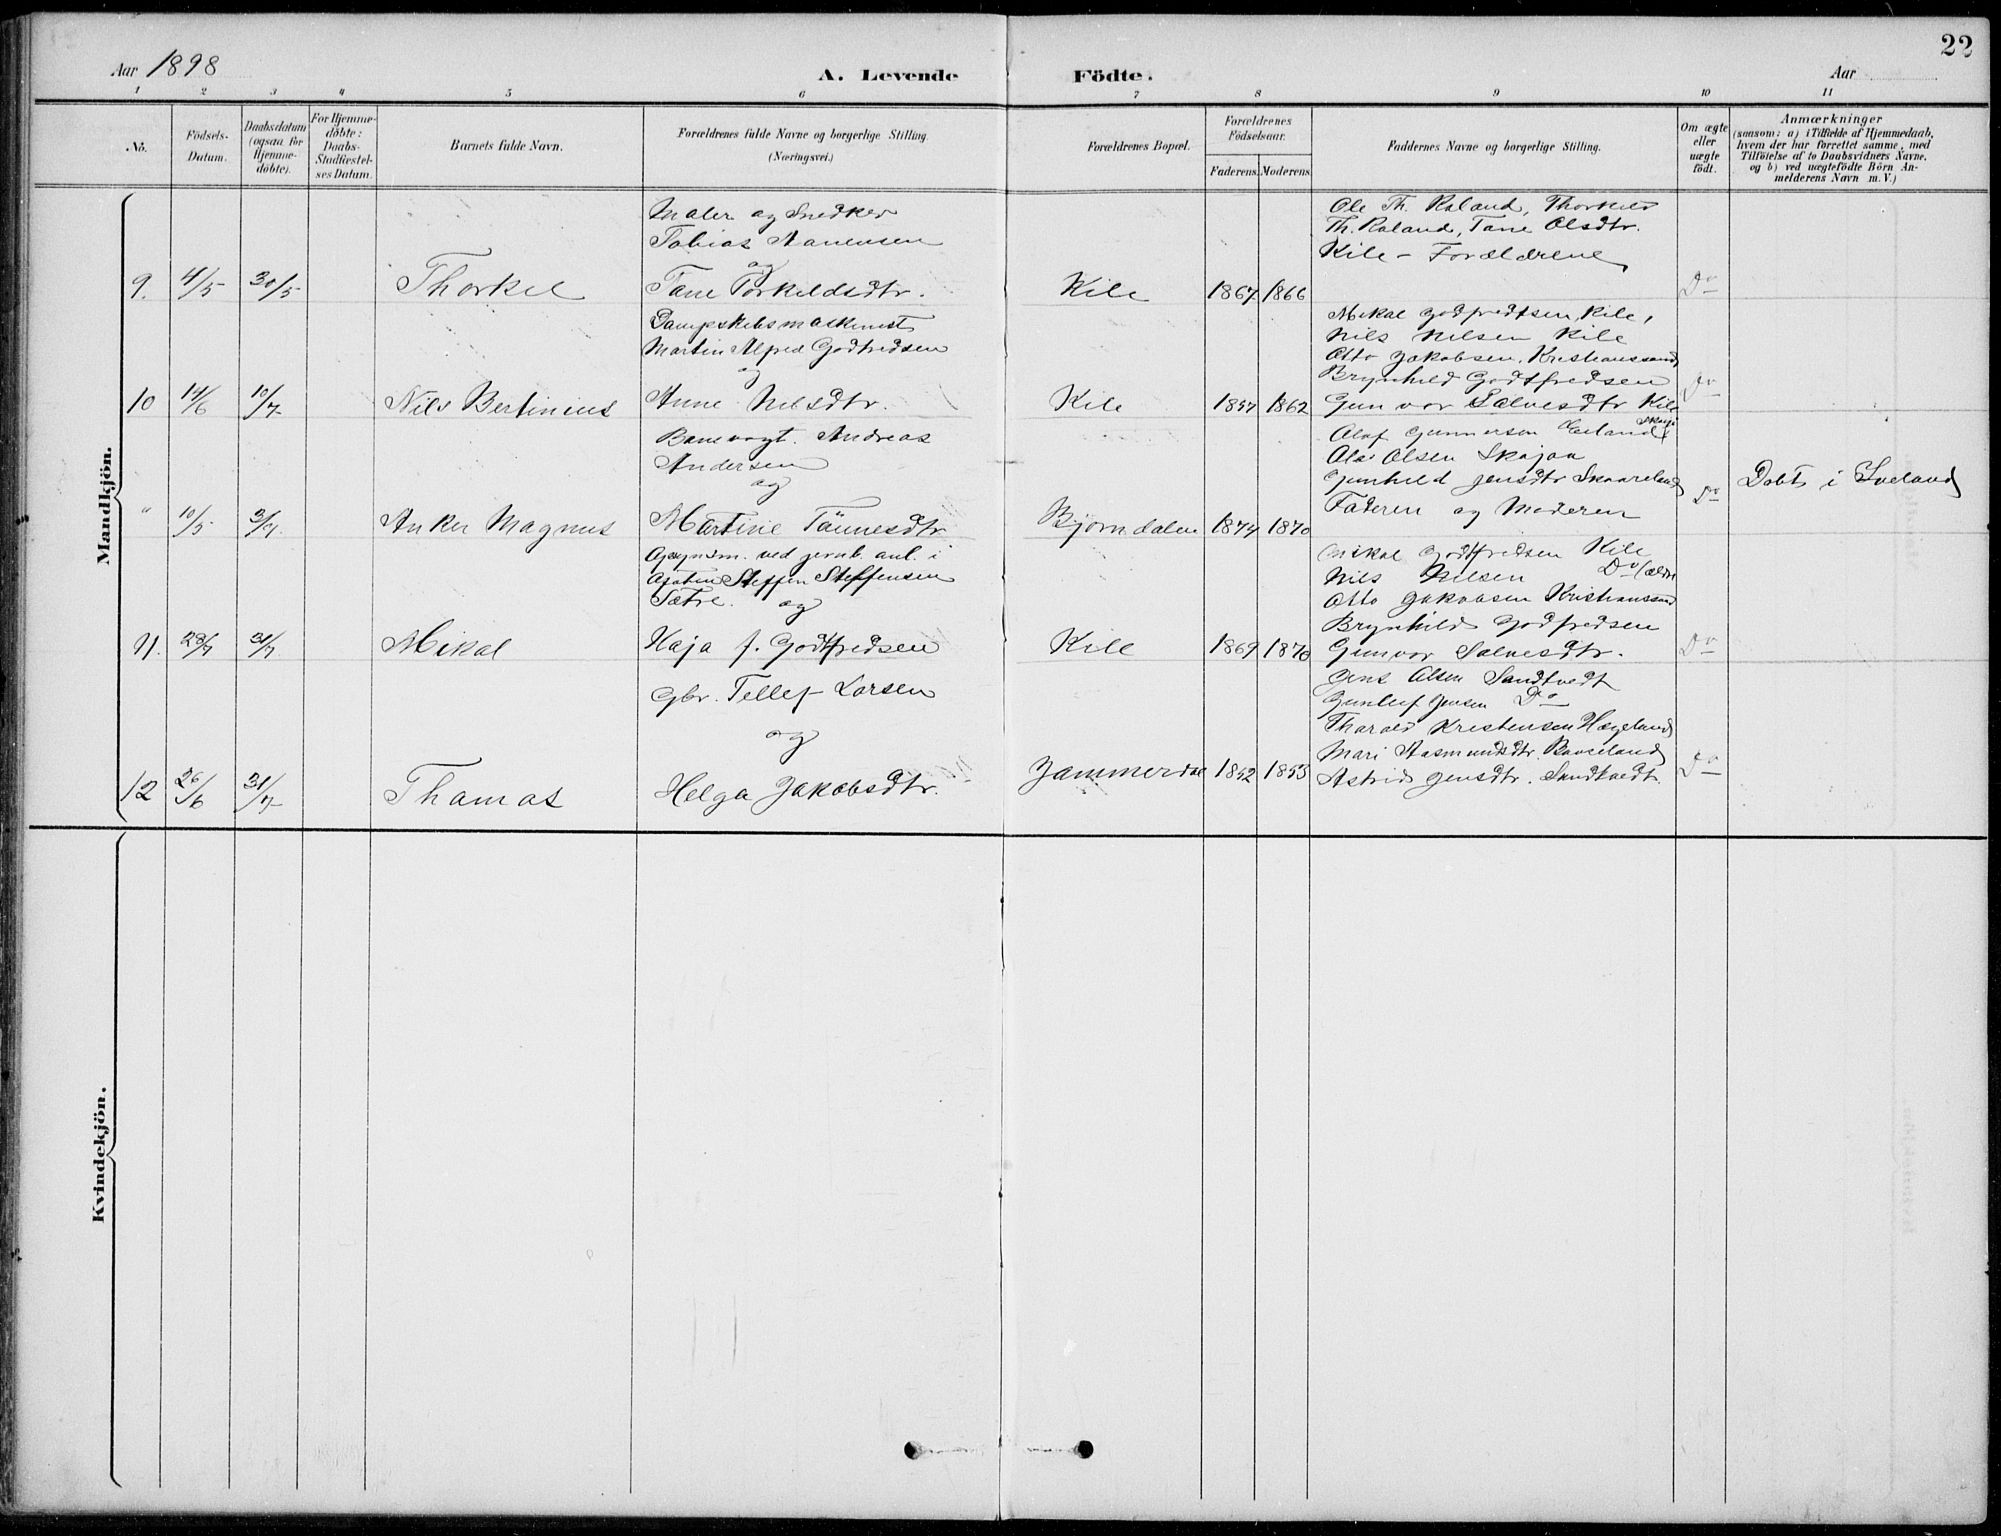 22
Aar 1898
A. Levende Födte.
Aar
1 2 3 4 5 6 7 8 9 10 11
No.
Födsels-Datum.
Daabsdatum (ogsaa for Hjemme-döbte).
For Hjemme-döbte: Daabs-Stadfæstel-ses Datum.
Barnets fulde Navn.
Forældrenes fulde Navne og borgerlige Stilling.
(Næringsvei.)
Forældrenes Bopæl.
Forældrenes Födselsaar.
Faderens. Moderens.
Faddernes Navne og borgerlige Stilling.
Om ægte eller uægte födt.
Anmærkninger
(saasom: a) i Tilfælde af Hjemmedaab,
hvem der har forrettet samme, med
Tilföielse af to Daabsvidners Navne,
og b) ved uægtefödte Börn An-
melderens Navn m. V.)
Mandkjön.
Maler og Snedker
Tobias Aanensen
og
9. 4/5 30/5 Thorkel Tane Torkeldsdtr. Kile 1867 1866 Do
Ole Th. Røland, Thorkild
Th. Røland, Tane Olsdtr.
Kile - Forældrene
Dampskibsmaskinist
Martin Alfred Godtfredsen
og
10 14/6 10/7 Nils Bertinius Anne Nilsdtr. Kile 1857 1862 Do
Mikal Godfredtsen Kile,
Nils Nilsen Kile
Otto Jakobsen, Kristianssand
Brynhild Godtfredsen
Gunvor Salvesdtr Kile
Banevogt. Andreas
Andersen
og
" 10/5 3/7 Anker Magnus Martine Tønnesdtr Bjørndalen 1874 1870 Do Døbt i Iveland
Olaf Gunnersen
Ole Olsen Skajaa
Gunhild Jensdtr Skaareland
Faderen og Moderen
Opsynsm. ved jernb. anl. i
Steffen Steffensen
Sætre. og
11. 28/7 31/7 Mikal Kaja f. Godtfredsen Kile 1869 1870 Do
Mikal Godtfredsen Kile
Nils Nilsen Do
Otto Jakobsen Kristianssand
Brynhild Godfredsen
Gunvor Salvesdtr.
Gbr. Tellef Larsen
og
12 26/6 31/7 Thomas Helga Jakobsdtr. Jammerdal 1852 1853 Do
Jens Olsen Sandtvedt
Gunleif Jensen Do
Tharald Kristensen Hægeland
Mari Aasmundsdtr.
Astrid Jensdtr. Sandtvedt
Kvindekjön.